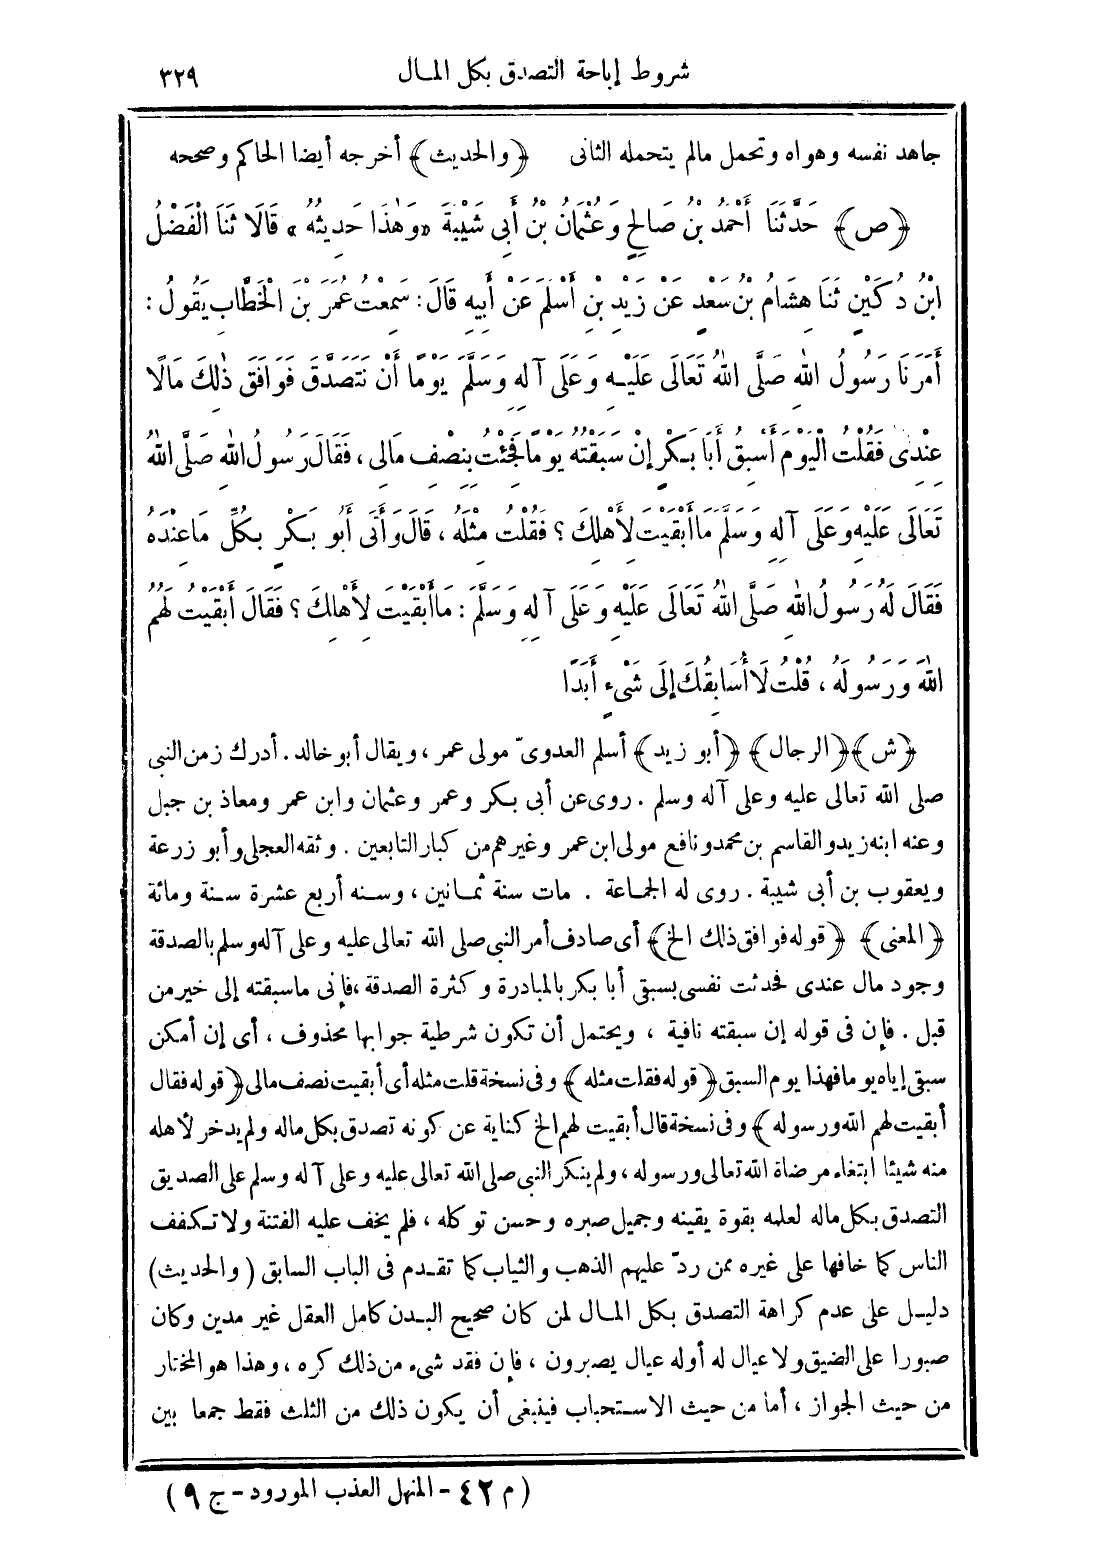 شروط إباحة التصدق بكل المال ٣٢٩
جاهد نفسه وهواه وتحمل مالم يتحمله الثانى ﴿والحديث﴾ أخرجه أيضا الحاكم وصححه
﴿ص﴾ حَدَّثَنَا أَحْمَدُ بْنُ صَالِحٍ وَعُثْمَانُ بْنُ أَبِى شَيْبَةَ «وَهٰذَا حَدِيثُهُ» قَالَا ثَنَا الْفَضْلُ
ابْنُ دُكَيْنٍ ثَنَا هِشَامُ بْنُ سَعْدٍ عَنْ زَيْدِ بْنِ أَسْلَمَ عَنْ أَبِيهِ قَالَ: سَمِعْتُ عُمَرَ بْنَ الْخَطَّابِ يَقُولُ:
أَمَرَنَا رَسُولُ اللهِ صَلَّى اللهُ تَعَالَى عَلَيْهِ وَعَلَى آلِهِ وَسَلَّمَ يَوْمًا أَنْ نَتَصَدَّقَ فَوَافَقَ ذٰلِكَ مَالًا
عِنْدِى فَقُلْتُ الْيَوْمَ أَسْبِقُ أَبَا بَكْرٍ إِنْ سَبَقْتُهُ يَوْمًا فَجِئْتُ بِنِصْفِ مَالِى، فَقَالَ رَسُولُ اللهِ صَلَّى اللهُ
تَعَالَى عَلَيْهِ وَعَلَى آلِهِ وَسَلَّمَ مَا أَبْقَيْتَ لِأَهْلِكَ؟ فَقُلْتُ مِثْلَهُ، قَالَ وَأَتَى أَبُو بَكْرٍ بِكُلِّ مَا عِنْدَهُ
فَقَالَ لَهُ رَسُولُ اللهِ صَلَّى اللهُ تَعَالَى عَلَيْهِ وَعَلَى آلِهِ وَسَلَّمَ: مَا أَبْقَيْتَ لِأَهْلِكَ؟ فَقَالَ أَبْقَيْتُ لَهُمُ
اللهَ وَرَسُولَهُ، قُلْتُ لَا أُسَابِقُكَ إِلَى شَىْءٍ أَبَدًا
﴿ش﴾ ﴿الرجال﴾ ﴿أبو زيد﴾ أسلم العدوىّ مولى عمر، ويقال أبو خالد. أدرك زمن النبى
صلى الله تعالى عليه وعلى آله وسلم. روى عن أبى بكر وعمر وعثمان وابن عمر ومعاذ بن جبل
وعنه ابنه زيد والقاسم بن محمد ونافع مولى ابن عمر وغيرهم من كبار التابعين. وثقه العجلى وأبو زرعة
ويعقوب بن أبى شيبة. روى له الجماعة. مات سنة ثمانين، وسنه أربع عشرة سنة ومائة
﴿المعنى﴾ ﴿قوله فوافق ذلك الخ﴾ أى صادف أمر النبى صلى الله تعالى عليه وعلى آله وسلم بالصدقة
وجود مال عندى فحدثت نفسى بسبقى أبا بكر بالمبادرة وكثرة الصدقة، فإنى ماسبقته إلى خير من
قبل. فإن فى قوله إن سبقته نافية، ويحتمل أن تكون شرطية جوابها محذوف، أى إن أمكن
سبقى إياه يوما فهذا يوم السبق ﴿قوله فقلت مثله﴾ وفى نسخة قلت مثله أى أبقيت نصف مالى ﴿قوله فقال
أبقيت لهم الله ورسوله﴾ وفى نسخة قال أبقيت لهم الخ كناية عن كونه تصدق بكل ماله ولم يدخر لأهله
منه شيئا ابتغاء مرضاة الله تعالى ورسوله، ولم ينكر النبى صلى الله تعالى عليه وعلى آله وسلم على الصديق
التصدق بكل ماله لعلمه بقوة يقينه وجميل صبره وحسن توكله، فلم يخف عليه الفتنة ولا تكفف
الناس كما خافها على غيره ممن ردّ عليهم الذهب والثياب كما تقدم فى الباب السابق (والحديث)
دليل على عدم كراهة التصدق بكل المال لمن كان صحيح البدن كامل العقل غير مدين وكان
صبورا على الضيق ولا عيال له أوله عيال يصبرون، فإن فقد شىء من ذلك كره، وهذا هو المختار
من حيث الجواز، أما من حيث الاستحباب فينبغى أن يكون ذلك من الثلث فقط جمعا بين
(م ٤٢ - المنهل العذب المورود - ج ٩)